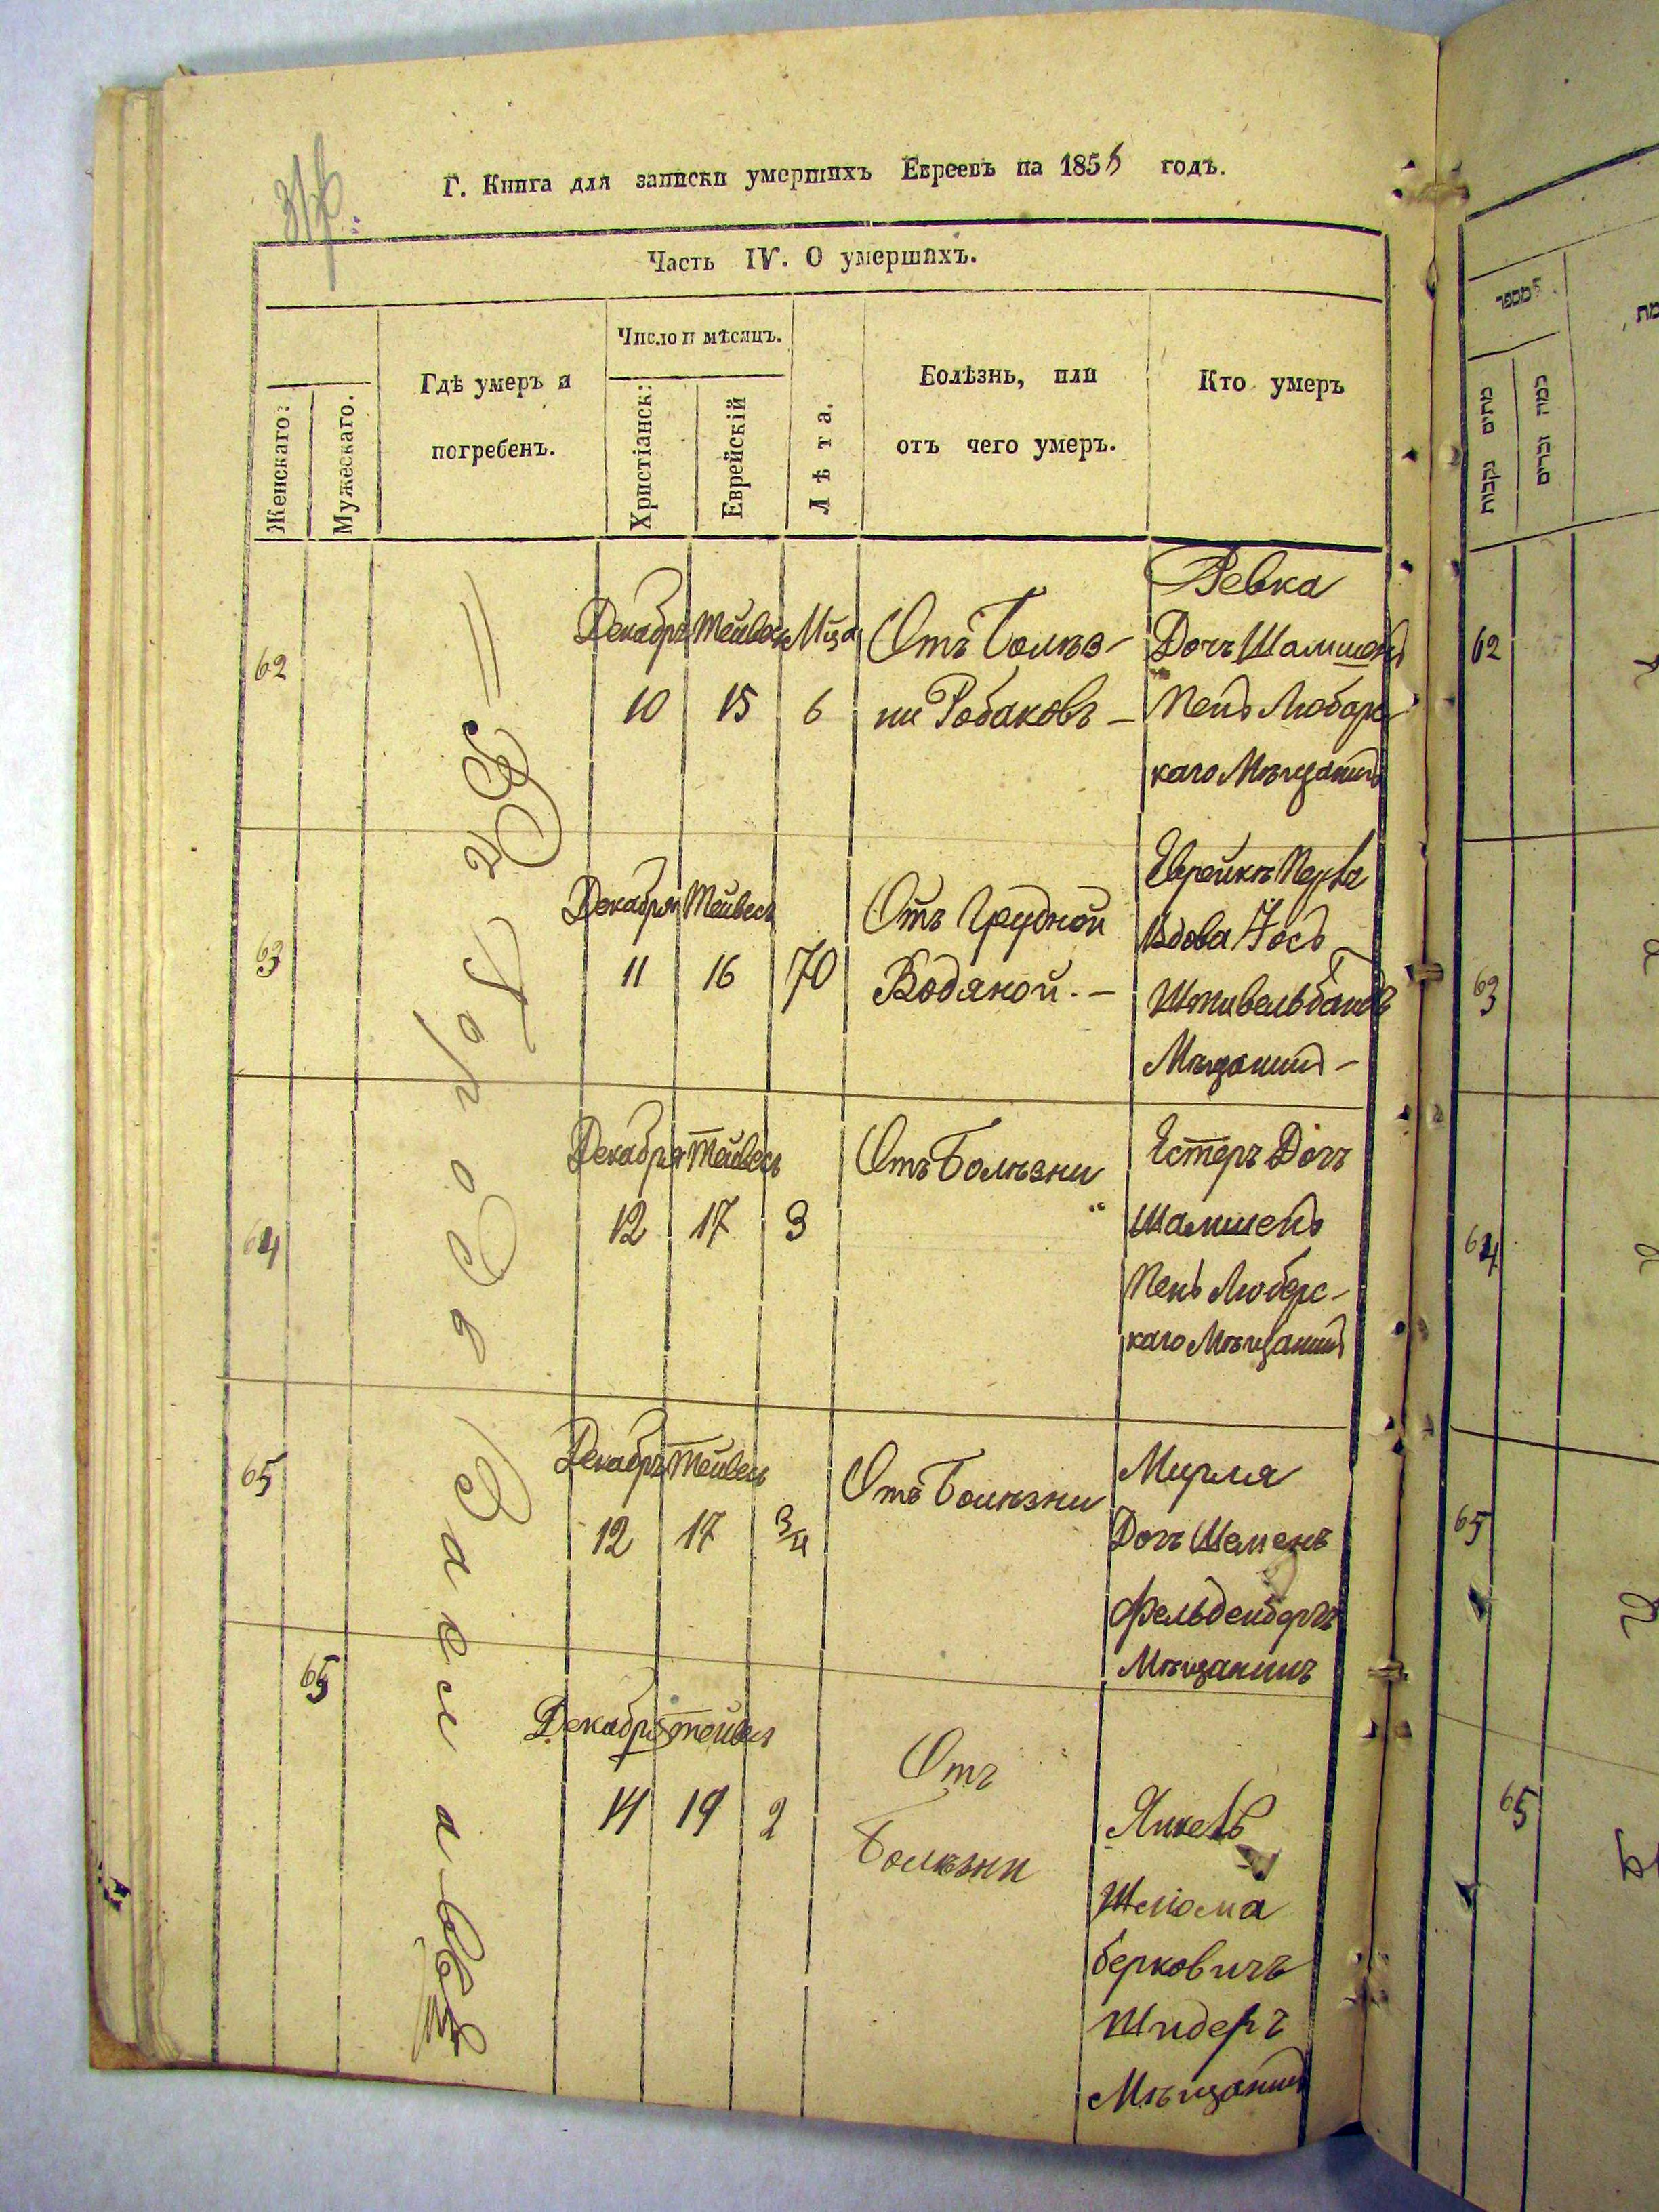 Г. Книга для записки умершихъ Евреевъ на 1855 годъ.
Часть IV. О умершихъ.
Женскаго:
Мужескаго.
Гдѣ умеръ и
погребенъ.
Число и мѣсяцъ.
Христіанск:
Еврейскій
Лѣта.
Болѣзнь, или
отъ чего умеръ.
Кто умеръ
62
Декабрь Тейвесь Мца
10 15 6
Отъ Болѣз-
ни Робаковъ –
Ревка
Дочь Шамшень
Пень Любарс
каго Мѣщанинъ
63
Декабря Тейвесь
11 16 70
Отъ Грудной
Водяной. –
Еврейкѣ
Вдова Іось
Мѣщанинъ –
64
Декабря Тейвесь
12 17 3
Отъ Болѣзни
Естеръ Дочь
Шамшень
Пень Любарс-
каго Мѣщанинъ
65
Декабрь Тейвесь
12 17 3/4
Отъ Болѣзни
Мирля
Дочь
Фельденберъ
Мѣщанинъ
65
Декабря Тейвес
14 19 2
Отъ
Болѣзни
Янкель
Шліома
Берковичъ
Шндеръ
Мѣщанинъ
מספר
מתים נקבות
כמה זכרים
62
63
64
65
65